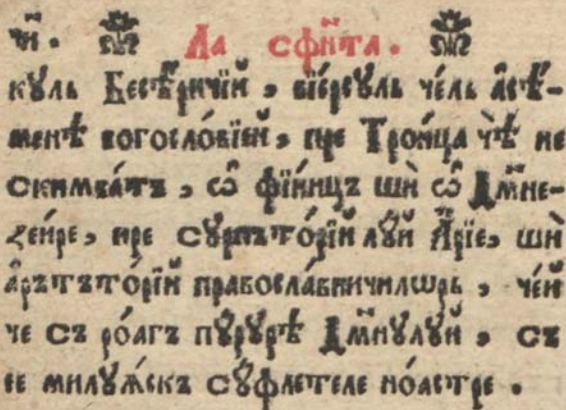 н҃і. Ла сфи́нта.
кꙋль Бесѣ́ричїй, вїе́рсꙋль че́ль а҆сѣ́-
менѣ богосло́вїей, пре Тро́ица чѣ не
скимба́тъ, ѡ҆ фїи́нцъ шѝ ѡ҆ Дм҃не-
ꙁеи́ре, пре сꙋрпъто́рїй лꙋ́й А҆́рїе, шѝ
а҆рътъто́рїй православничилѡрь, че́й
че съ ро́агъ пꙋ́рꙋрѣ Дм҃нꙋлꙋ́й, съ
се милꙋѧ́скъ сꙋ́флетеле но́астре.